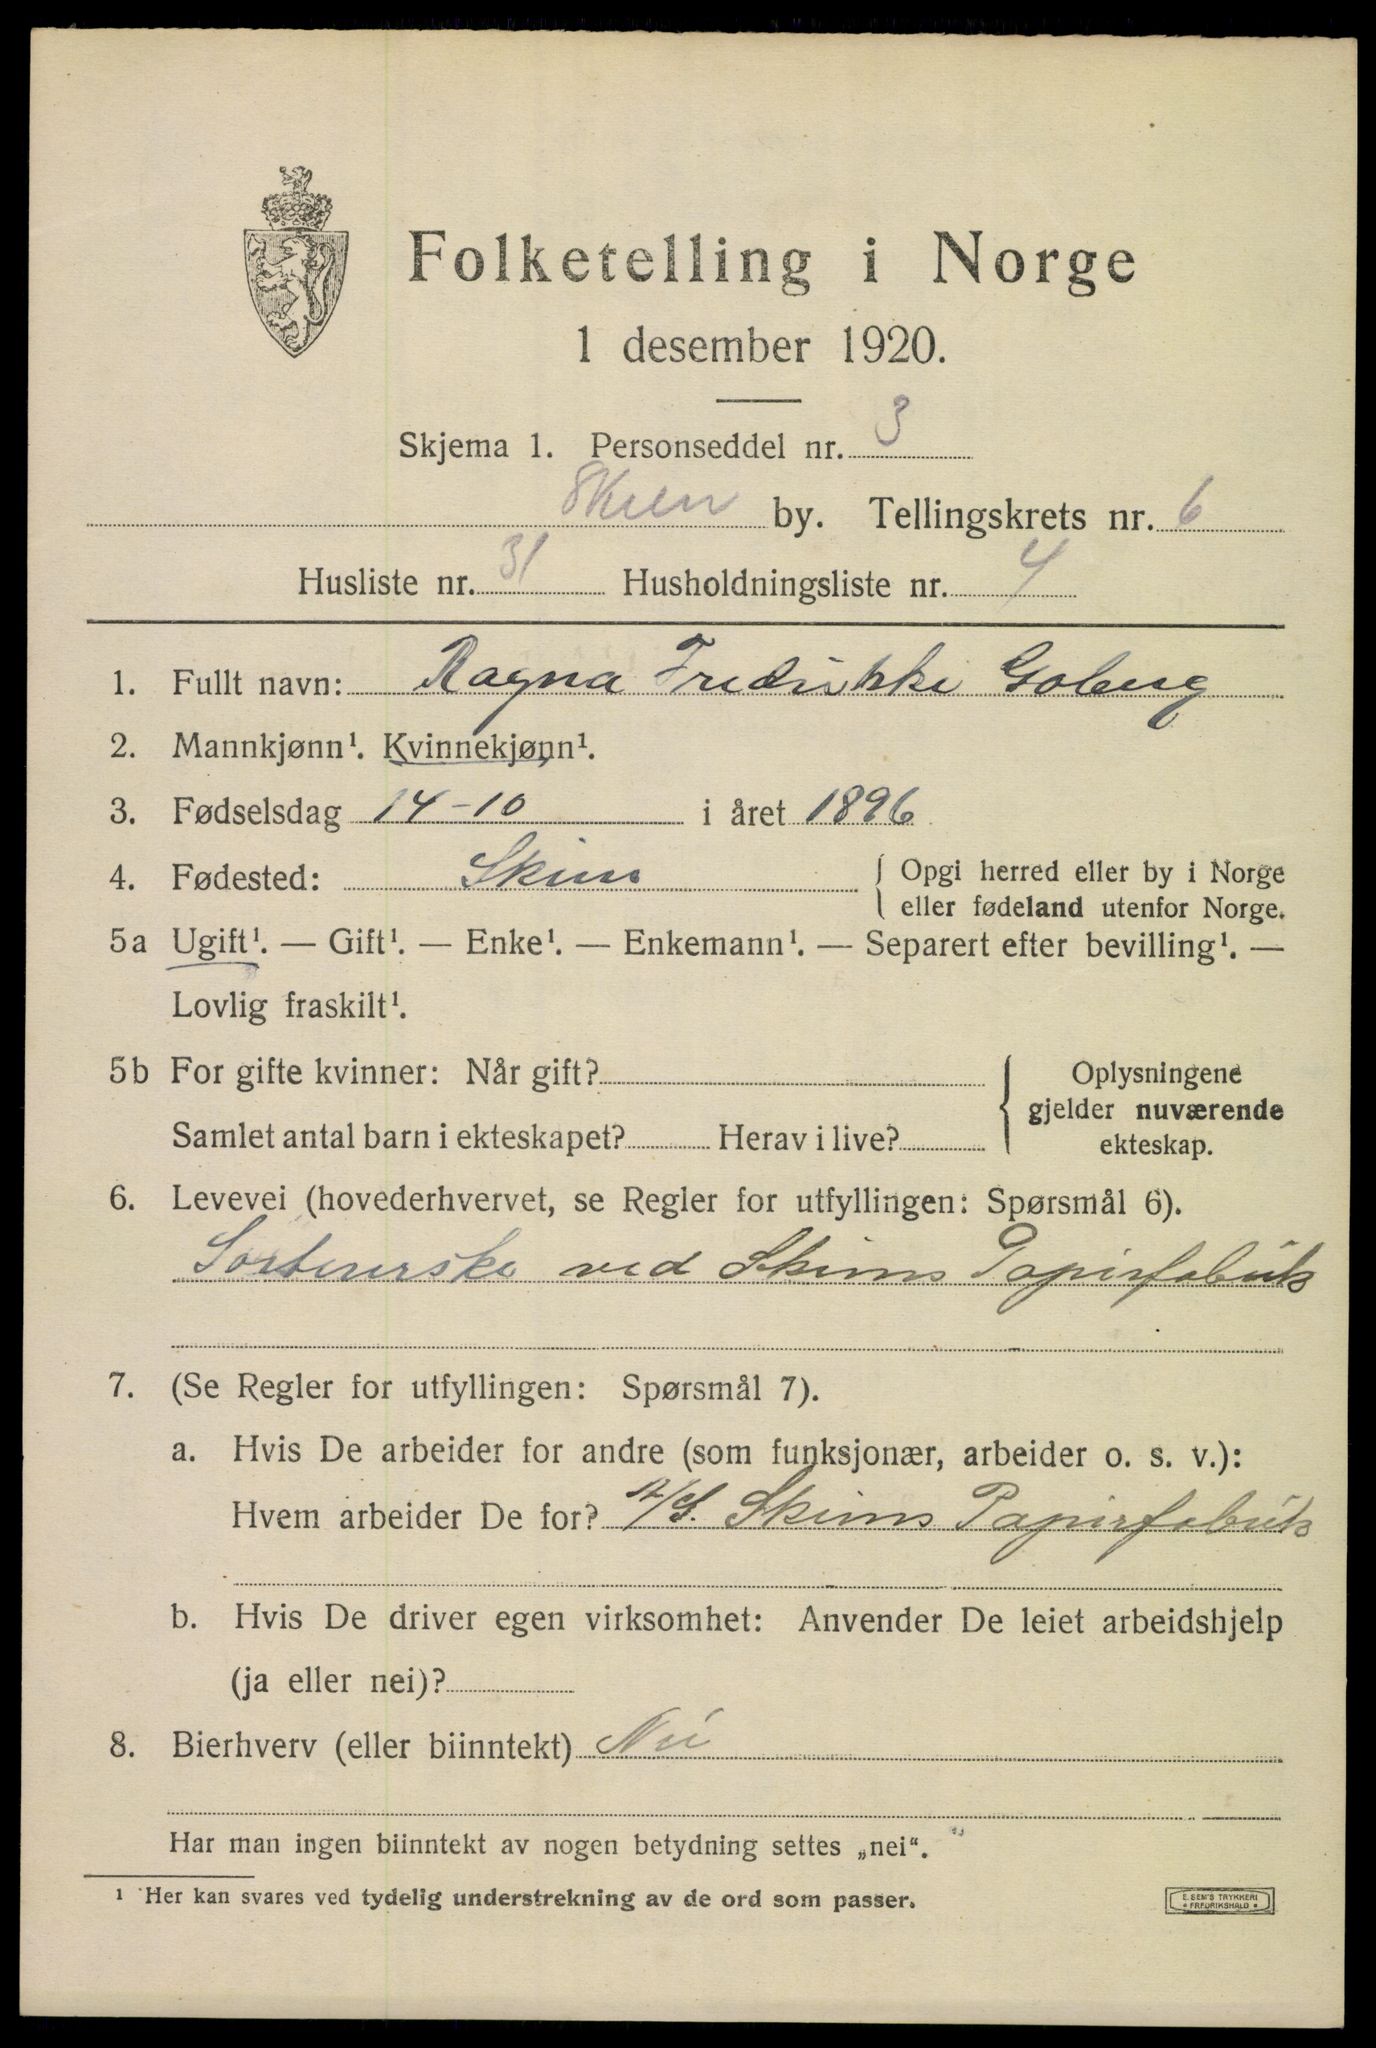 Folketelling i Norge
1 desember 1920.
Skjema 1. Personseddel nr. 3
Skien by. Tellingskrets nr. 6
Husliste nr. 31 Husholdningsliste nr. 4
1. Fullt navn: Ragna Fredrikke Goberg
2. Mannkjønn¹. Kvinnekjønn¹.
3. Fødselsdag 14-10 i året 1896
4. Fødested: Skien { Opgi herred eller by i Norge
eller fødeland utenfor Norge.
5a Ugift¹. — Gift¹. — Enke¹. — Enkemann¹. — Separert efter bevilling¹. —
Lovlig fraskilt¹.
5b For gifte kvinner: Når gift? { Oplysningene
gjelder nuværende
Samlet antal barn i ekteskapet? Herav i live? ekteskap.
6. Levevei (hovederhvervet, se Regler for utfyllingen: Spørsmål 6).
Sortererske ved Skiens Papirfabrik
7. (Se Regler for utfyllingen: Spørsmål 7).
a. Hvis De arbeider for andre (som funksjonær, arbeider o. s. v.):
Hvem arbeider De for? A/S. Skiens Papirfabrik
b. Hvis De driver egen virksomhet: Anvender De leiet arbeidshjelp
(ja eller nei)?
8. Bierhverv (eller biinntekt) Nei
Har man ingen biinntekt av nogen betydning settes „nei“.
¹ Her kan svares ved tydelig understrekning av de ord som passer.
E. SEM'S TRYKKERI
FREDRIKSHALD